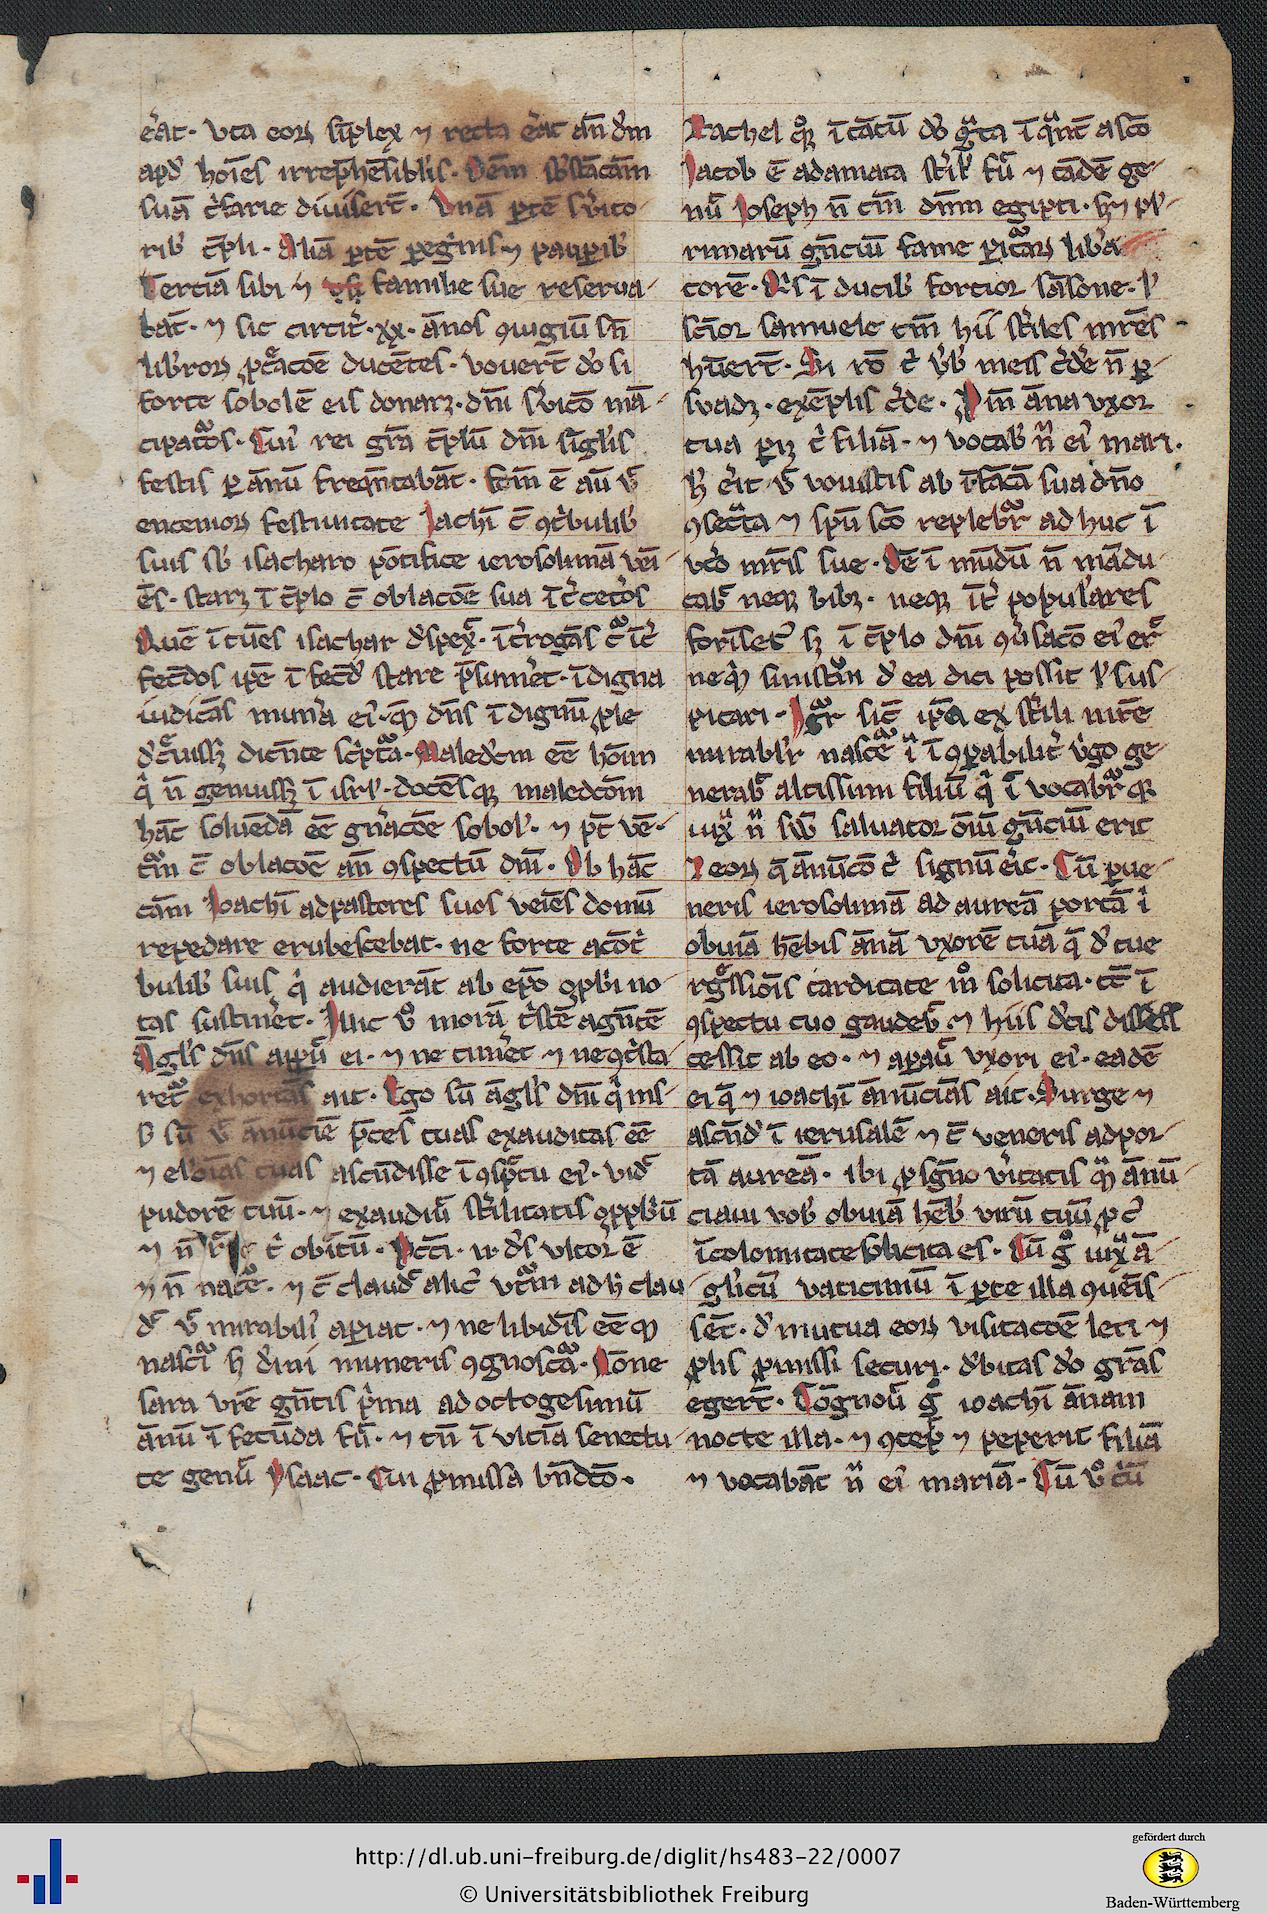 erat. vita eorum simplex et recta erat ante dominum
apud homines irreprehensibilis. Denique substantiam
suam trifarie diviserunt. Unam partem servito-
ribus templi. Aliam partem peregrinis et pauperibus
Terciam sibi et familie sue reserva-
bant. et sic circiter .xx. annos coniugium sine
liberorum procreatione ducentes. voverunt deo si
forte sobolem eis donaret. domini servicio man-
cipaturos. Cuius rei gratia templum domini singulis
festis per annum frequentabant. factum est autem ut
enceniorum festivitate Joachim cum contribulibus
suis sub isacharo pontifice ierosolimam veni-
ens. staret in templo cum oblacione sua inter ceteros
Quem intuens isachar despexit. interrogans cur inter
fecundos ipse infecundus stare presumeret. indigna
iudicans munera eius. quem dominus indignum prole
dicente scriptura. Maledictum esse hominem
qui non genuisset in israel. docensque maledictionem
hanc solvendam esse generacione sobolis. et post ven-
turum cum oblacione ante conspectum domini. Ob hanc
causam Joachim ad pastores suos veniens domum
repedare erubescebat. ne forte a contri-
bulibus suis qui audierant ab episcopo opprobrii no-
tas sustineret. Illic vero moram tristem agentem
Angelus domini apparuit ei. et ne timeret et ne contrista
retur exhortans ait. Ego sum angelus domini qui mis-
sus sum ut annunciem preces tuas exauditas esse
et elemosinas tuas ascendisse in conspectu eius. vidit
pudorem tuum. et exaudivit sterilitatis opprobrium
et non tibi obiectum. Peccati. non deus ultor est
et non nature. et cum claudit alicuius uterum ad hoc clau
dit ut mirabilius aperiat. et ne libidinis esse quod
nascitur sed divini muneris cognoscatur. Nonne
sara vestre gentis prima ad octogesimum
annum infecunda fuit. et tamen in ultima senectu
te genuit Ysaac. Cui promissa benedictio.
Rachel quoque in tantum deo grata in quantum a sancto
Jacob est adamata sterilis fuit et tandem ge-
nuit Joseph non tantum dominum egipti. sed et plu-
rimarum gencium fame periturarum libera
torem. Quis in ducibus fortior samsone. vel
sanctior samuele tamen hii steriles matres
habuerunt. Si racio te verbis meis credere non per-
suadet. exemplis crede. Proinde anna uxor
tua pariet tibi filiam. et vocabis nomen eius maria.
hec erit ut vovistis ab infancia sua domino
consecrata et spiritu sancto replebitur adhuc in
utero matris sue. Denique in mundum non mandu-
cabit neque bibet. neque inter populares
forinsecus sed in templo domini conversacio eius erit
nequid sinistrum de ea dici possit vel sus-
picari. Igitur sicut ipsa ex sterili matre
mirabiliter nascetur ita incomparabiliter virgo ge-
nerabit altissimum filium qui vocabitur quia
iuxta nomen suum salvator omnium gencium erit
Et eorum que annuncio tibi signum erit. Cum perve-
neris ierosolimam ad auream portam ibi
obviam habebis annam uxorem tuam que de tue
regressionis tarditate modo solicita. tunc in
conspectu tuo gaudebit et hiis dictis discessit
cessit ab eo. et apparuit uxori eius. eadem
ei que et ioachim annuncians ait. Surge et
ascende in ierusalem et cum veneris ad por-
tam auream. ibi pro signo veritatis quam annun
ciavi vobis obviam habebis virum tuum pro cuius
incolomitate sollicita es. Cum ergo iuxta an
gelicum vaticinium in parte illa convenis-
sent. de mutua eorum visitacione leti et
prolis promisse securi. debitas deo gracias
egerunt. Cognovit ergo ioachim annam
nocte illa. et concepit et peperit filiam
et vocabant nomen eius mariam. Cum vero trium
http://dl.ub.uni-freiburg.de/diglit/hs483-22/0007
© Universitätsbibliothek Freiburg
gefördert durch
Baden-Württemberg